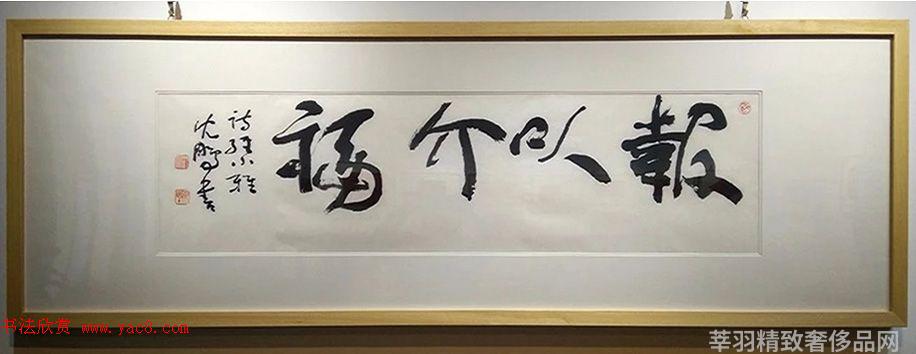 報以介福
诗经小雅
沈鹏书
书法欣赏 www.yac8.com
莘羽精致奢侈品网